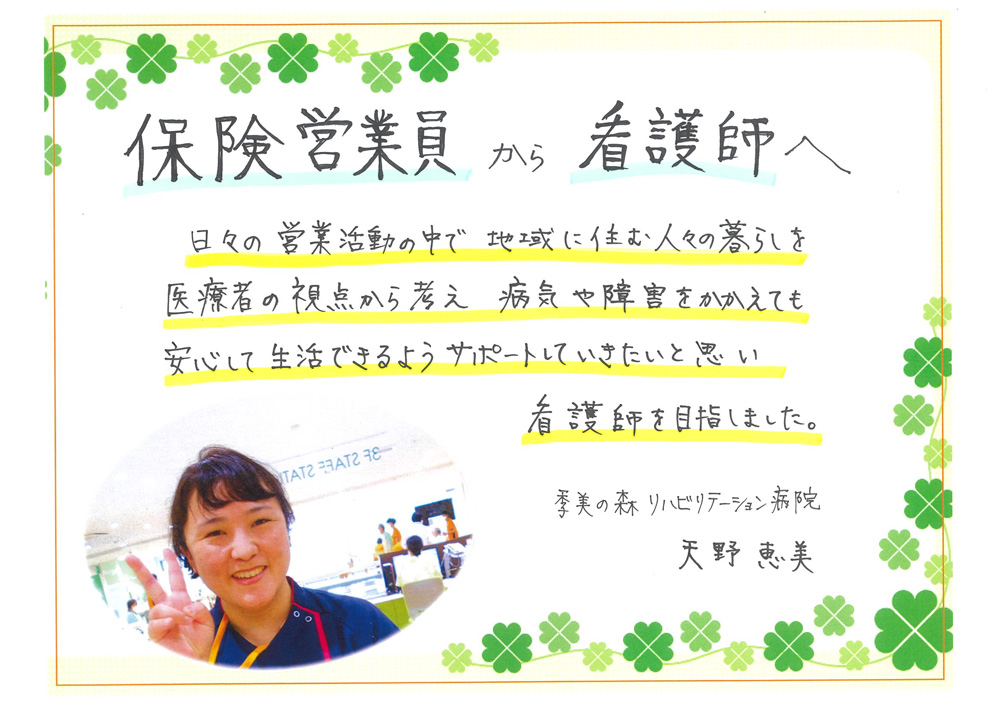 保険営業員から看護師へ
日々の営業活動の中で 地域に住む人々の暮らしを
医療者の視点から考え 病気や障害をかかえても
安心して生活できるようサポートしていきたいと思い
看護師を目指しました。
3F STAFF STATI
季美の森リハビリテーション病院
天野 恵美